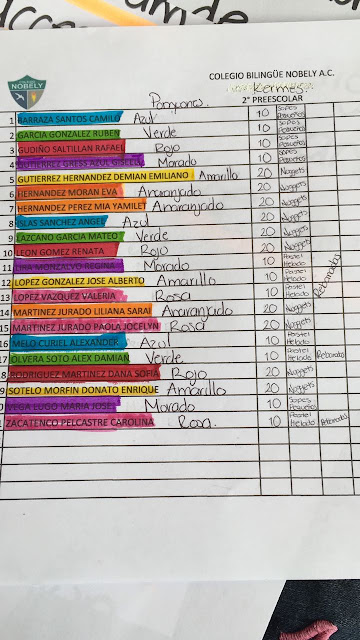 NOBELY
COLEGIO BILINGÜE NOBELY A.C.
Kermes.
Pompones. 2° PREESCOLAR
1 BARRAZA SANTOS CAMILO Azul 10 Sopes Pequeños
2 GARCIA GONZALEZ RUBEN Verde 10 Sopes Pequeños
3 GUDIÑO SALTILLAN RAFAEL Rojo 10 Sopes Pequeños
4 GUTIERREZ GRESS AZUL GISELL Morado 10 Sopes Pequeños
5 GUTIERREZ HERNANDEZ DEMIAN EMILIANO Amarillo 20 Nuggets
6 HERNANDEZ MORAN EVA Anaranjado 20 Nuggets
7 HERNANDEZ PEREZ MIA YAMILET Anaranjado 20 Nuggets
8 ISLAS SANCHEZ ANGEL Azul 20 Nuggets
9 LAZCANO GARCIA MATEO Verde 20 Nuggets
10 LEON GOMEZ RENATA Rojo 20 Nuggets
11 LIRA MONZALVO REGINA Morado 10 Pastel Helado
12 LOPEZ GONZALEZ JOSE ALBERTO Amarillo 10 Pastel Helado Rebanadas
13 LOPEZ VAZQUEZ VALERIA Rosa 10 Pastel Helado
14 MARTINEZ JURADO LILIANA SARAI Anaranjado 20 Nuggets
15 MARTINEZ JURADO PAOLA JOCELYN Rosa 20 Nuggets
16 MELO CURIEL ALEXANDER Azul 10 Pastel Helado
17 OLVERA SOTO ALEX DAMIAN Verde 10 Pastel Helado Rebanadas
18 RODRIGUEZ MARTINEZ DANA SOFIA Rojo 20 Nuggets
19 SOTELO MORFIN DONATO ENRIQUE Amarillo 20 Nuggets
VEGA LUGO MARIA JOSE Morado 10 Sopes Pequeños
ZACATENCO PELCASTRE CAROLINA Rosa. 10 Pastel Helado Rebanadas